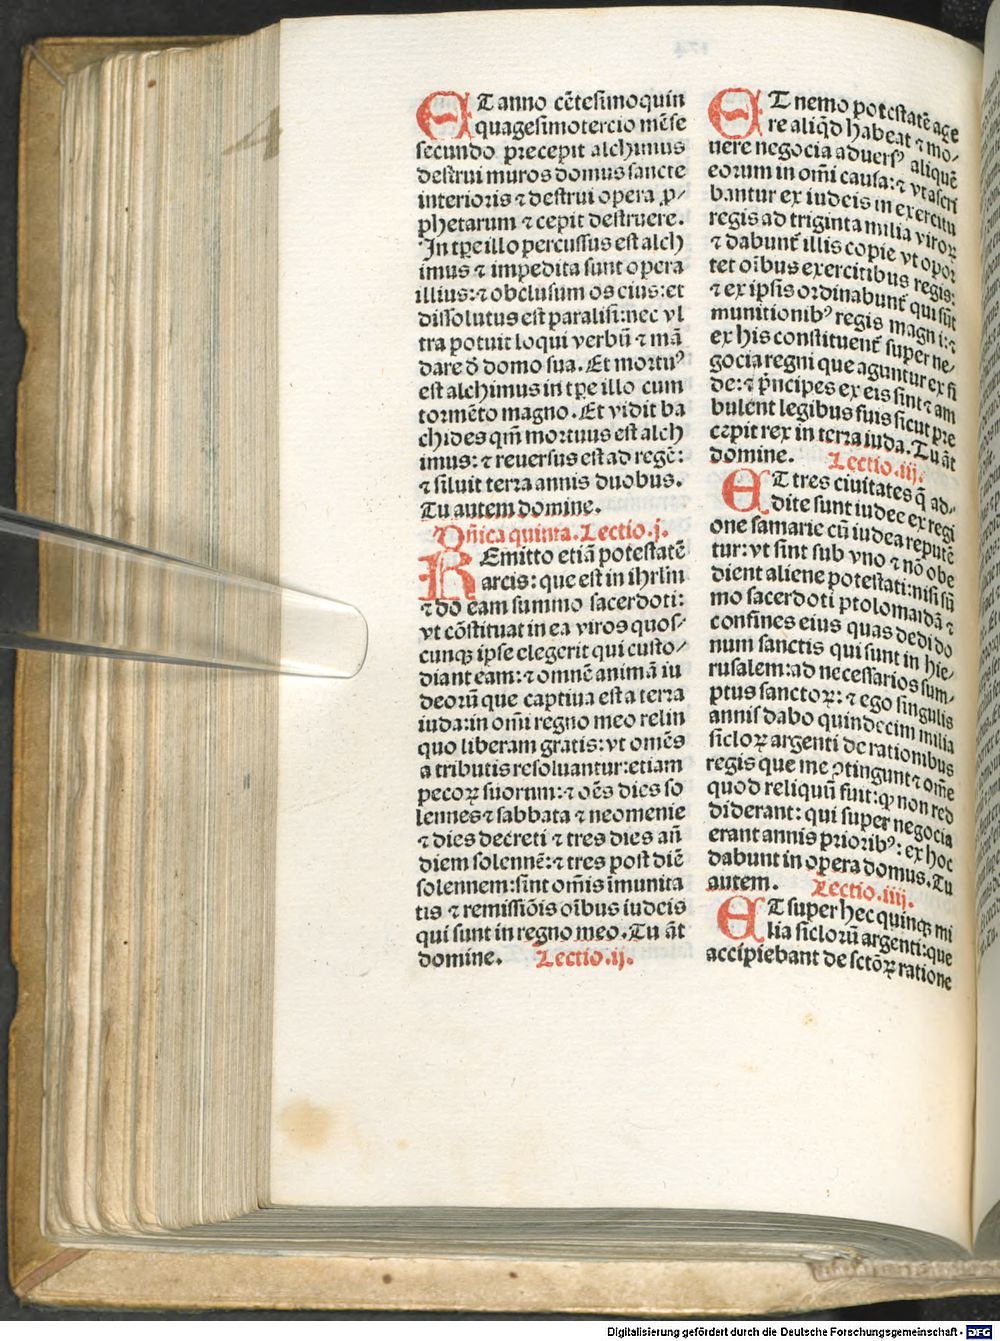 ET anno cẽtesimoquin
quagesimotercio mẽse
secundo precepit alchimus
destrui muros domus sancte
interioris ⁊ destrui opera ꝓ-
phetarum ⁊ cepit destruere.
In tꝑe illo percussus est alch
imus ⁊ impedita sunt opera
illius: ⁊ obclusum os eius: et
dissolutus est paralisi: nec vl
tra potuit loqui verbũ ⁊ mã
dare đ domo sua. Et mortuꝰ
est alchimus in tꝑe illo cum
tormẽto magno. Et vidit ba
chides qm̃ mortuus est alch
imus: ⁊ reuersus est ad regẽ:
⁊ siluit terra annis duobus.
Tu autem domine.
Dñica quinta. Lectio .j.
REmitto etiã potestatẽ
arcis: que est in ihrlm̃
⁊ do eam summo sacerdoti:
vt cõstituat in ea viros quos-
cunqꝫ ipse elegerit qui custo-
diant eam: ⁊ omnẽ animã iu
deorũ que captiua est a terra
iuda: in om̃i regno meo relin
quo liberam gratis: vt om̃es
a tributis resoluantur: etiam
pecoꝝ suorum: ⁊ oẽs dies so
lennes ⁊ sabbata ⁊ neomenie
⁊ dies decreti ⁊ tres dies añ
diem solennẽ: ⁊ tres post diẽ
solennem: sint om̃is ĩmunita
tis ⁊ remissiõis oĩbus iudeis
qui sunt in regno meo. Tu ãt
domine. Lectio .ij.
ET nemo potestatẽ age
re aliq̃d habeat ⁊ mo-
uere negocia aduersꝰ aliquẽ
eorum in om̃i causa: ⁊ vt ascri
bantur ex iudeis in exercitu
regis ad triginta milia viroꝝ
⁊ dabunt̃ illis copie vt opor
tet oĩbus exercitibus regis:
⁊ ex ipsis ordinabunt̃ qui sũt
munitionibꝰ regis magni: ⁊
ex his constituent̃ super ne-
gocia regni que aguntur ex fi
de: ⁊ p̃ncipes ex eis sint ⁊ am
bulent legibus suis sicut pre
cepit rex in terra iuda. Tu ãt
domine. Lectio .iij.
ET tres ciuitates q̃ ad-
dite sunt iudee ex regi
one samarie cũ iudea reputẽ
tur: vt sint sub vno ⁊ nõ obe
dient aliene potestati: nisi sũ
mo sacerdoti ptolomaidã ⁊
confines eius quas dedi do
num sanctis qui sunt in hie-
rusalem: ad necessarios sum-
ptus sanctoꝝ: ⁊ ego singulis
annis dabo quindecim milia
sicloꝝ argenti de rationibus
regis que me ꝯtingunt ⁊ om̃e
quod reliquũ fuit: qꝫ non red
diderant: qui super negocia
erant annis prioribꝰ: ex hoc
dabunt in opera domus. Tu
autem. Lectio .iiij.
ET super hec quinqꝫ mi
lia siclorũ argenti: que
accipiebant de sctõꝝ ratione
Digitalisierung gefördert durch die Deutsche Forschungsgemeinschaft - DFG